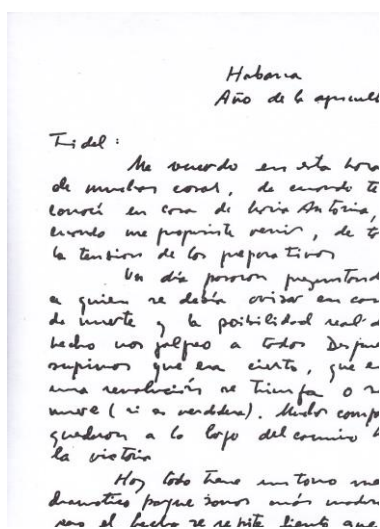 Habana
Año de la agricult
Fidel:
Me recuerdo en esta hora
de muchas cosas, de cuando te
conocí en casa de María Antonia,
cuando me propusiste venir, de to
la tension de los preparativos
Un día pasaron preguntando
a quien se debía avisar en cas
de muerte y la posibilidad real d
hecho nos golpeo a todos Despue
supimos que era cierto, que en
una revolución se triunfa o se
muere (si es verdadera). Muchos comp
quedaron a lo largo del camino h
la victoria
Hoy todo tiene un tono me
dramatico porque somos más madur
pero el hecho se repite Siento que